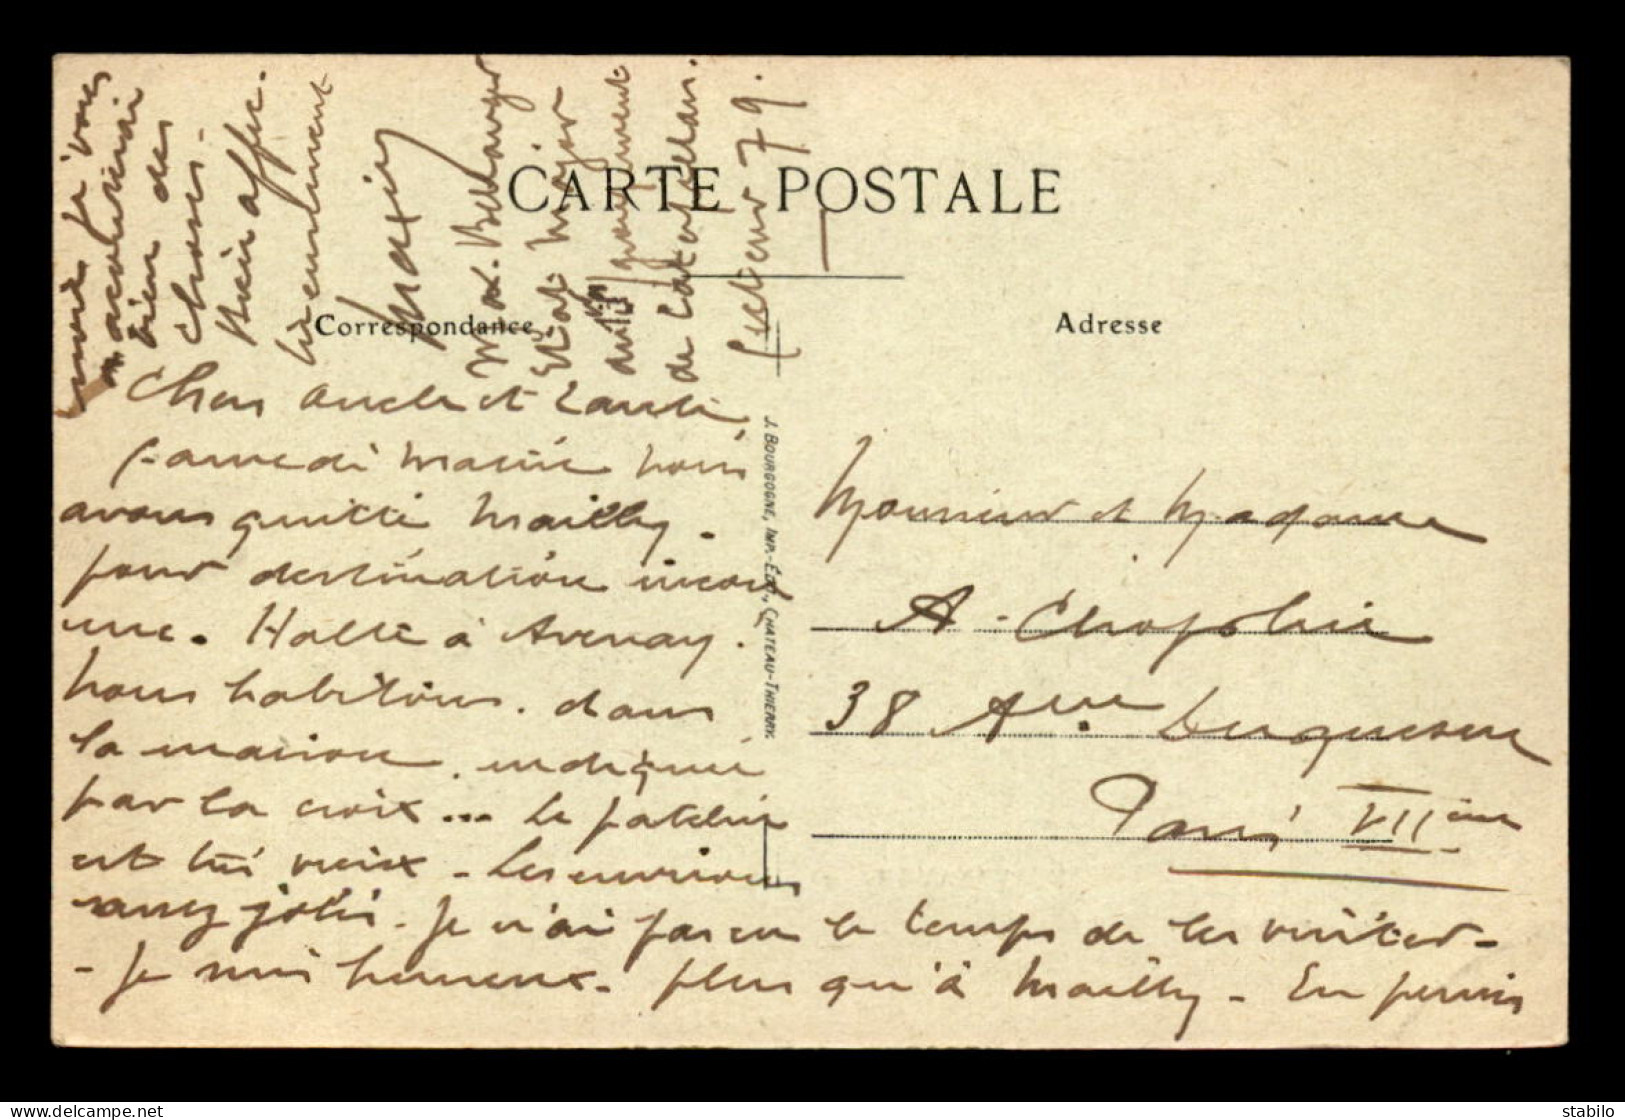 CARTE POSTALE
Correspondance
Adresse
J. BOURGOGNE, IMP.-ÉDIT., CHATEAU-THIERRY.
Chers oncle et tante,
samedi matin nous
avons quitté Mailly.
pour destination incon
nue. Halte à Avenay.
nous habitons dans
la maison indiquée
par la croix... Le patelin
est très vieux - Les environs
assez jolis. Je n'ai pas eu le temps de les visiter -
- Je suis heureux. plus qu'à Mailly - En permis
je vous
raconterai
bien des
choses.
Bien affec.
Max
Max. Bellanger
État Major
du groupement
de
secteur 79.
Monsieur et Madame
A. 
38 Avenue Duquesne
Paris VIIème
stabilo